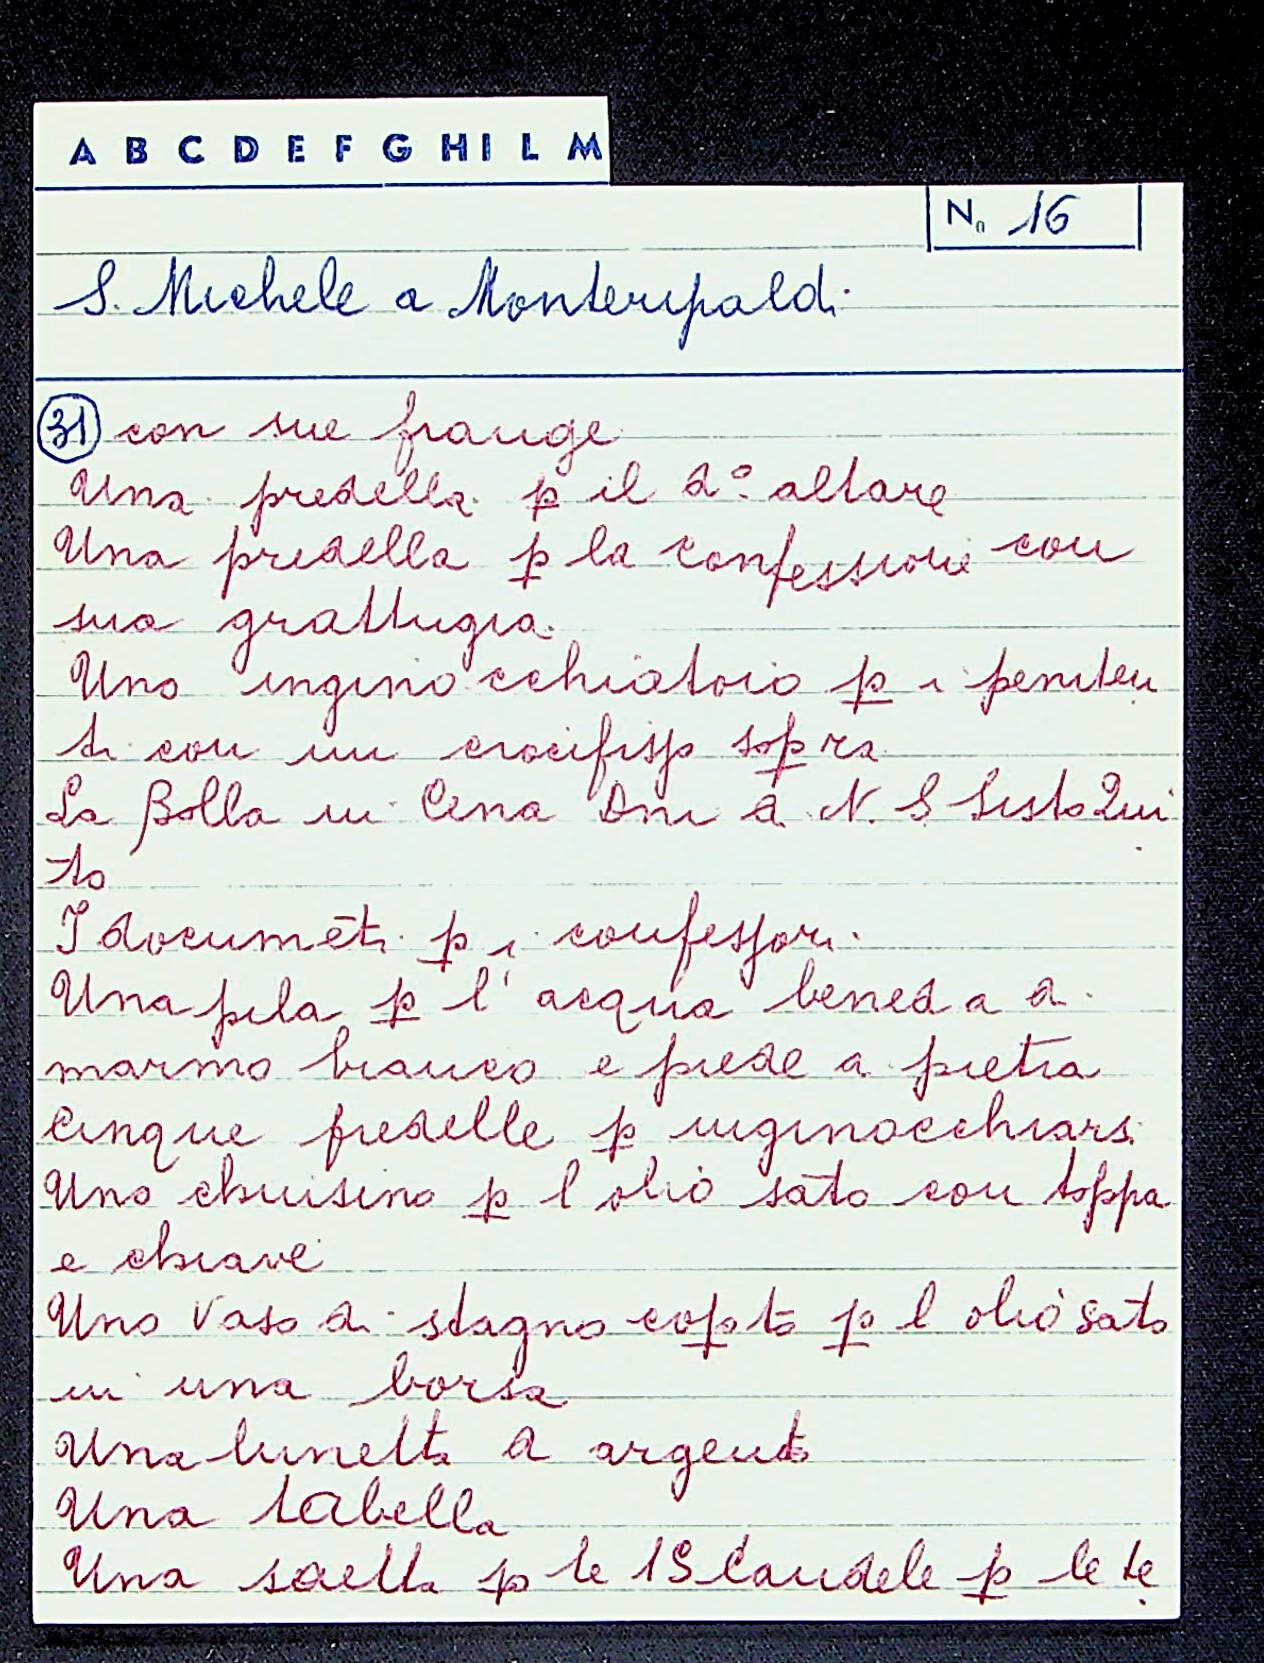 A B C D E F G H I L M
N. 16
S. Michele a Monteripaldi
31 con sue frange
Una predella p il d.º altare
Una predella p la confessione con
sua grattugia.
Uno inginocchiatoio p i peniten
ti con un crocifisso sopra
La Bolla in Cena Dni d N. S Sisto Quin
to
I documēti p i confessori.
Una pila p l' acqua bened a di
marmo bianco e piede di pietra
Cinque predelle p inginocchiarsi
Uno chiusino p l olio sāto con toppa
e chiave
Uno vaso di stagno copto p l olio sāto
in una borsa
Una lunetta d argento
Una tabella
Una saetta p le 15 Candele p le te